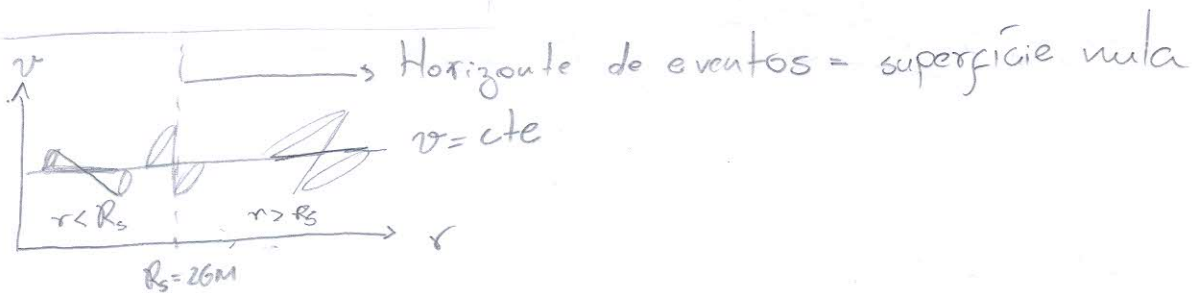 v
Horizonte de eventos = superfície nula
v = cte
r < Rs
r > Rs
r
Rs = 2GM